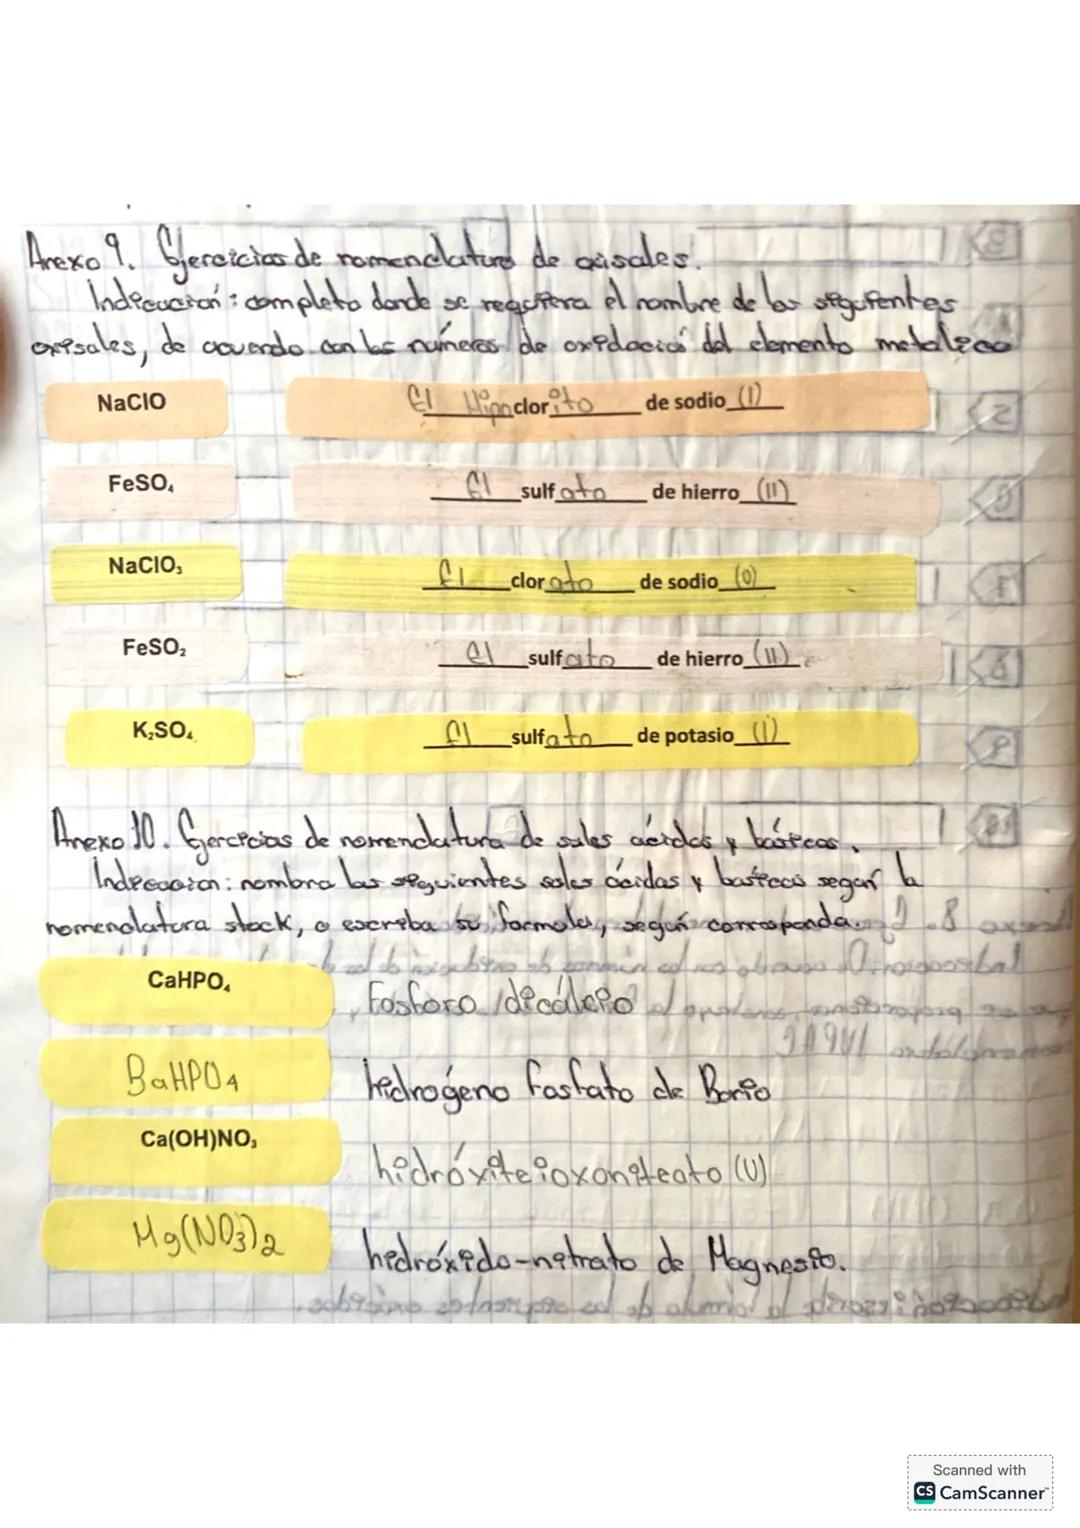 Anexo 9. Ejercicios de nomenclatura de oxisales.
Indicación: completa donde se requiera el nombre de las siguientes
oxisales, de acuerdo con los números de oxidació del elemento metalico
NaClO El Hipoclorito de sodio (I)
FeSO₄ El sulfato de hierro (II)
NaClO₃ El clorato de sodio (0)
FeSO₂ el sulfato de hierro (II)
K₂SO₄ El sulfato de potasio (I)
Anexo 10. Ejercicios de nomenclatura de sales acidas y básicas.
Indicacion: nombra las siguientes sales ácidas y basicas según la
nomenclatura stock, o escriba su formula, según corresponda.
CaHPO₄ Fosforo dicálcio
BaHPO4 hidrógeno fosfato de Bario
Ca(OH)NO₃
Mg(NO3)2 hidróxido-nitrato de Magnesio.
Scanned with
CS CamScanner